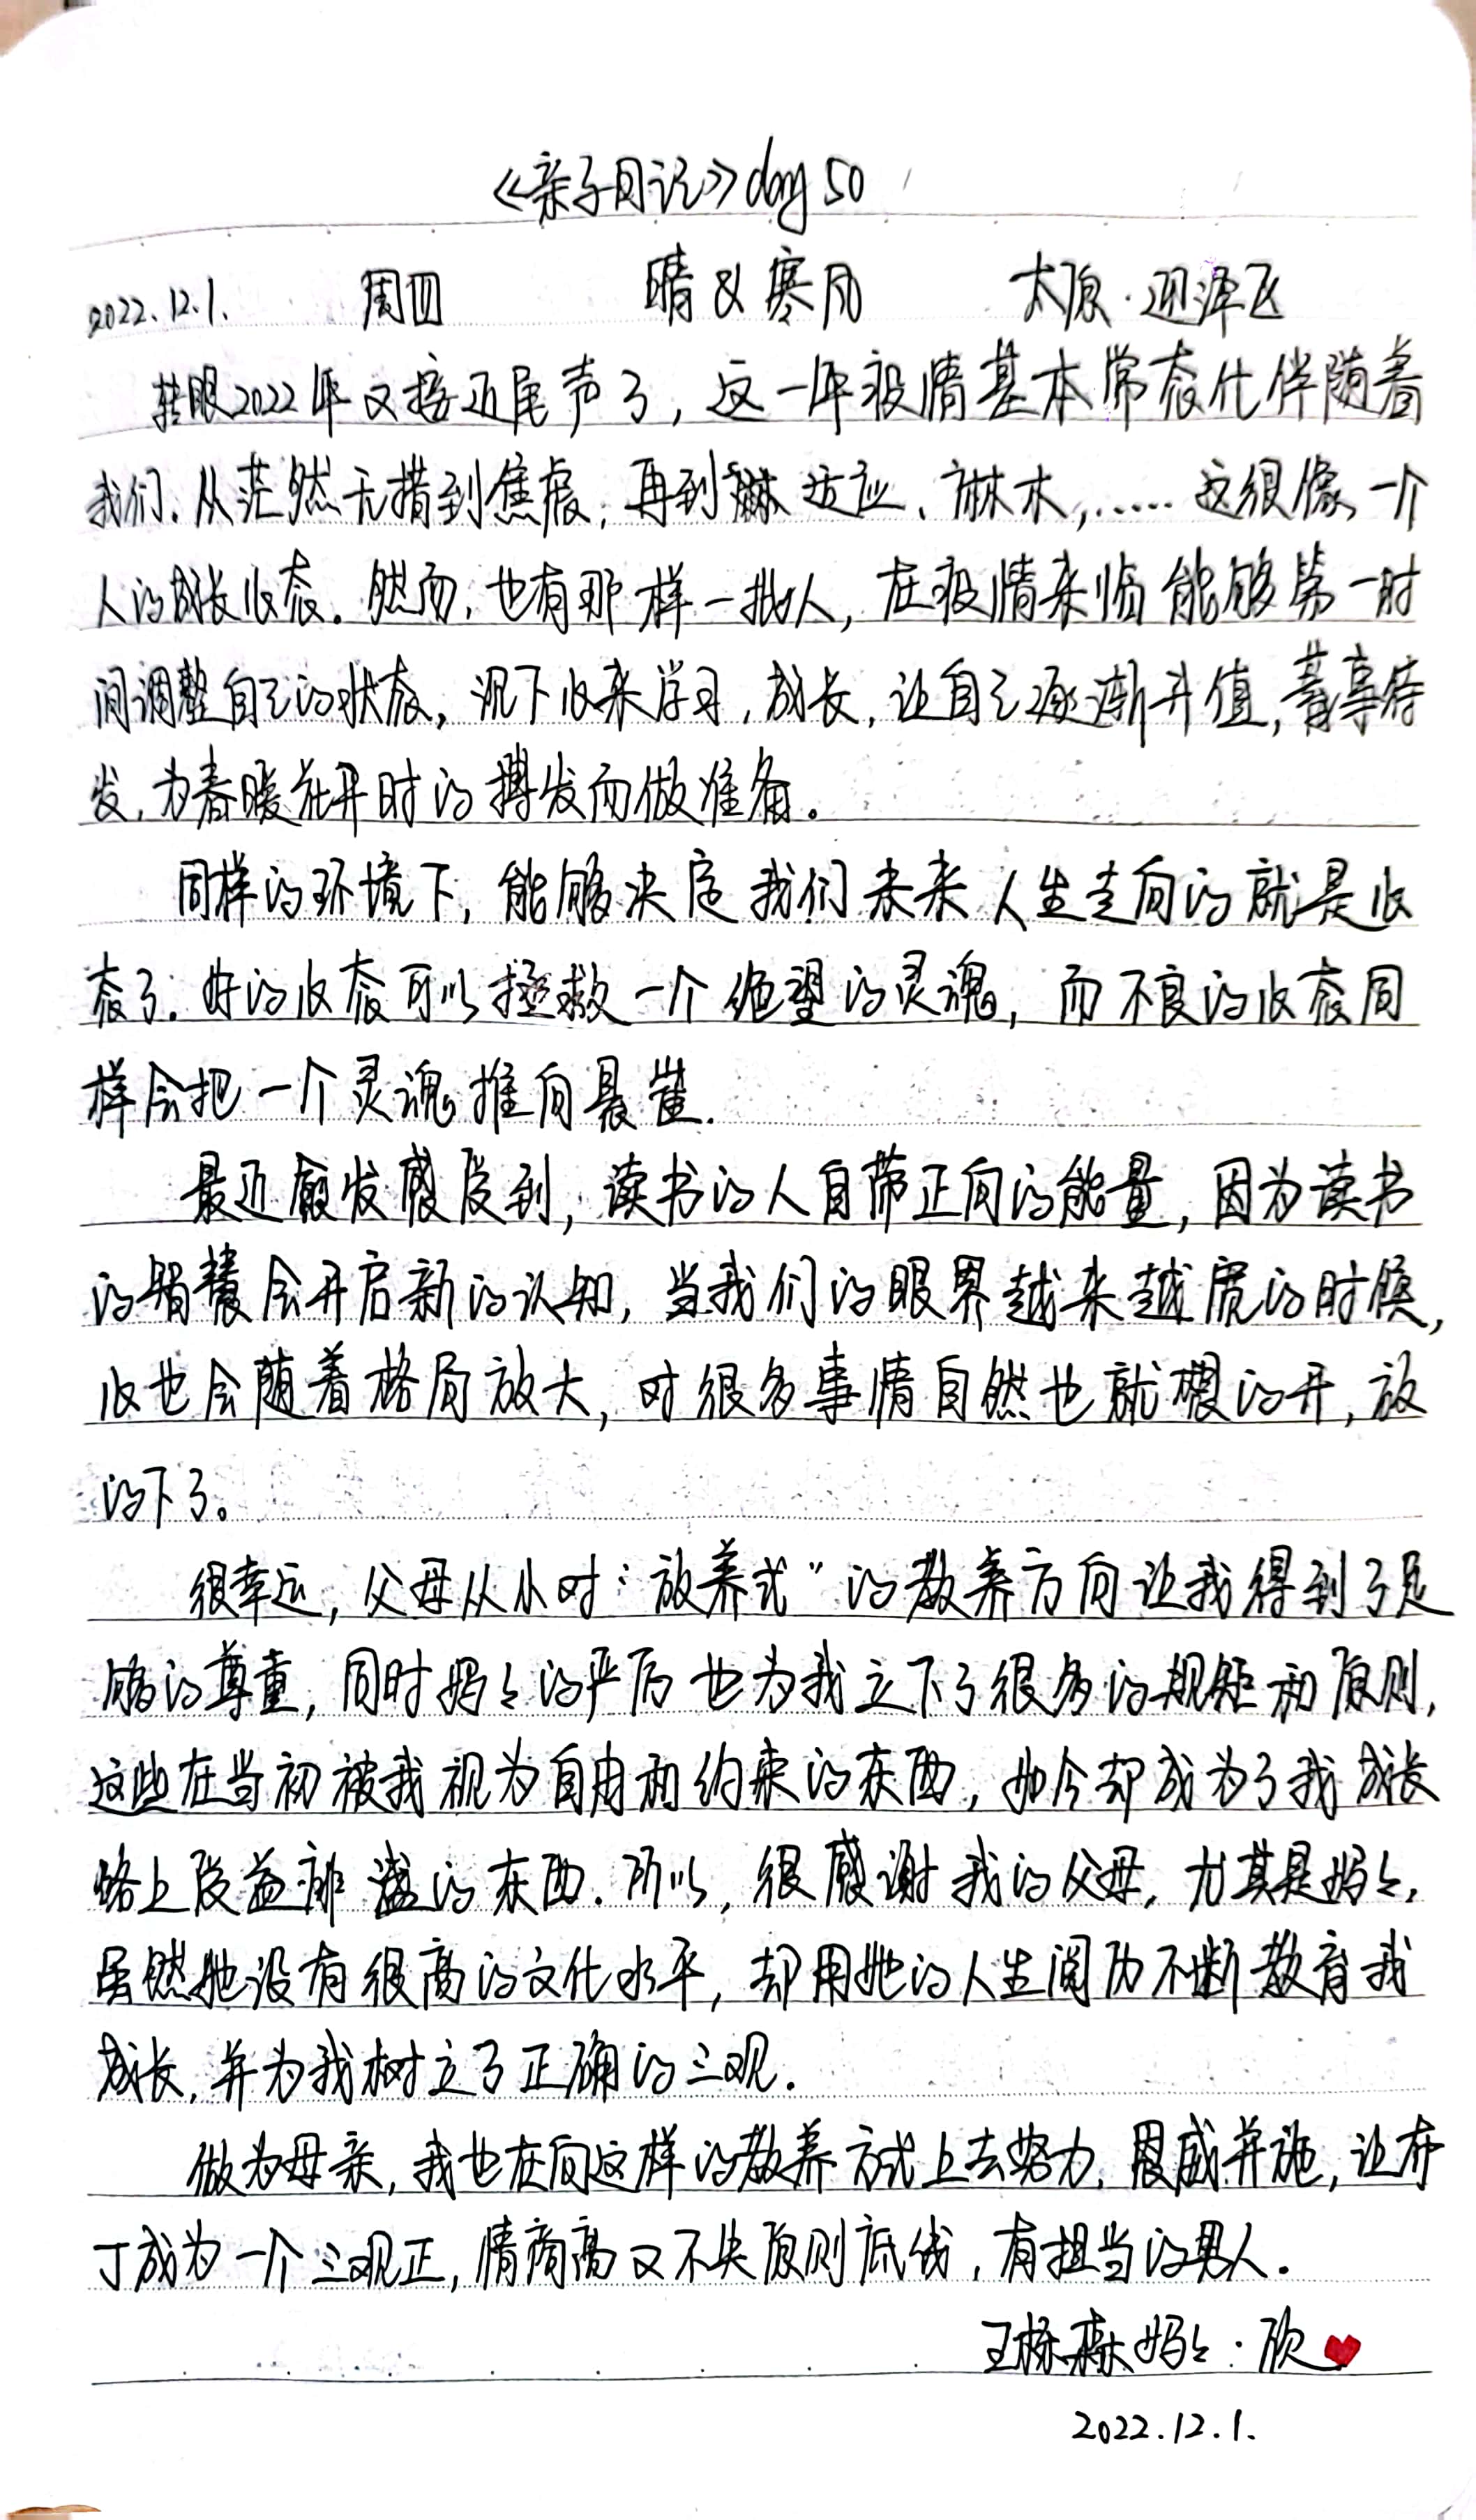 《亲子日记》day 50
2022.12.1. 周四 晴&寒风 太原·迎泽区
转眼2022年又接近尾声了，这一年疫情基本常态化伴随着
我们，从茫然无措到焦虑，再到适应、麻木，……这很像一个
人的成长心态。然而，也有那样一批人，在疫情来临能够第一时
间调整自己的状态，沉下心来学习，成长，让自己逐渐升值，蓄享待
发，为春暖花开时的搏发而做准备。
同样的环境下，能够决定我们未来人生走向的就是心
态了。好的心态可以拯救一个绝望的灵魂，而不良的心态同
样会把一个灵魂推向悬崖.
最近愈发感受到，读书的人自带正向的能量，因为读书
的智慧会开启新的认知，当我们的眼界越来越宽的时候，
心也会随着格局放大，对很多事情自然也就想的开，放
的下了。
很幸运，父母从小对“放养式”的教养方向让我得到了足
够的尊重，同时妈妈的严厉也为我立下了很多的规矩和原则，
这些在当初被我视为自由和约束的东西，如今却成为了我成长
路上受益非浅的东西.所以，很感谢我的父母，尤其是妈妈，
虽然她没有很高的文化水平，却用她的人生阅历不断教育我
成长，并为我树立了正确的三观.
做为母亲，我也在向这样的教养方式上去努力，恩威并施，让布
丁成为一个三观正，情商高又不失原则底线，有担当的男人.
王栎森妈妈·欣
2022.12.1.